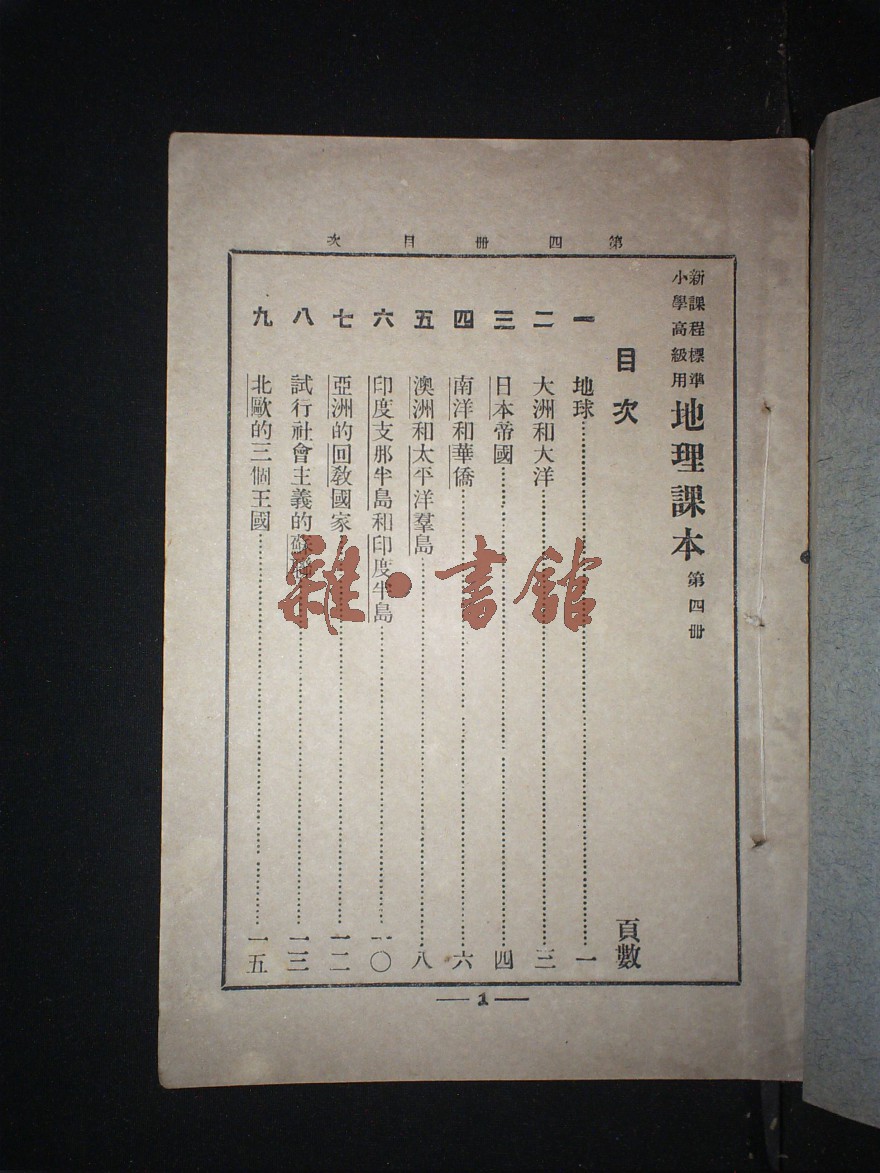 第四册目次
新課程標準
小學高級用
地理課本 第四册
目次 頁數
一 地球 一
二 大洲和大洋 三
三 日本帝國 四
四 南洋和華僑 六
五 澳洲和太平洋羣島 八
六 印度支那半島和印度半島 一〇
七 亞洲的回教國家 一二
八 試行社會主義的蘇聯 一三
九 北歐的三個王國 一五
1
雜·書館